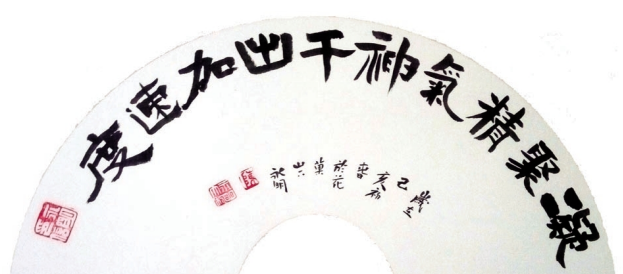 凝聚精氣神干出加速度
歲在己亥初於花菓山